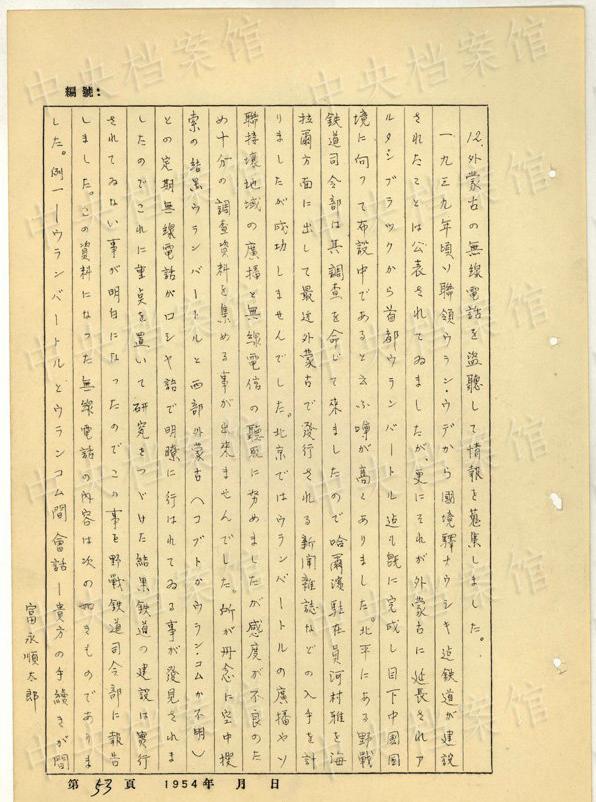 編號：
12. 外蒙古の無線電話を盗聽して情報を蒐集しました。
一九三九年頃ソ聯領ウラン・ウデから國境驛ナウシキ迠鉄道が建設
されたことは公表されてゐましたが、更にそれが外蒙古に延長されア
ルタンブラックから首都ウランバートル迠も既に完成し目下中國國
境に向って布設中であると云ふ噂が高くありました。北平にある野戰
鉄道司令部は其調査を命じて来ましたので哈爾濱駐在員河村雅を海
拉爾方面に出して最近外蒙古で發行される新聞雜誌などの入手を計
りましたが成功しませんでした。北京ではウランバートルの廣播やソ
聯接壤地域の廣播と無線電信の聽取に努めましたが感度が不良のた
め十分の調査資料を集める事が出来ませんでした。所が丹念に空中搜
索の結果ウランバートルと西部外蒙古（コブトかウラン・コムか不明）
との定期無線電話がロシヤ語で明瞭に行はれてゐる事が發見されま
したのでこれに重点を置いて研究をつゞけた結果鉄道の建設は實行
されてゐない事が明白になったのでこの事を野戰鉄道司令部に報告
しました。この資料になった無線電話の内容は次の如きものでありま
した。例一｜ウランバートルとウランコム間會話｜貴方の手続きが間
富永順太郎
第 53 頁 1954年 月 日
中央档案馆